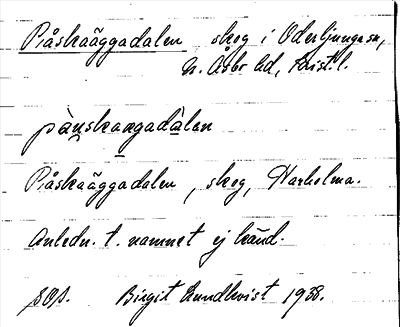 Påskaäggadalen skog i Oderljunga sn,
N. Åsbo hd, Krist. l.
pàskaagadàlan
Påskaäggadalen, skog, Harholma.
Anledn. t. namnet ej känd.
Birgit Lundkvist 1938.